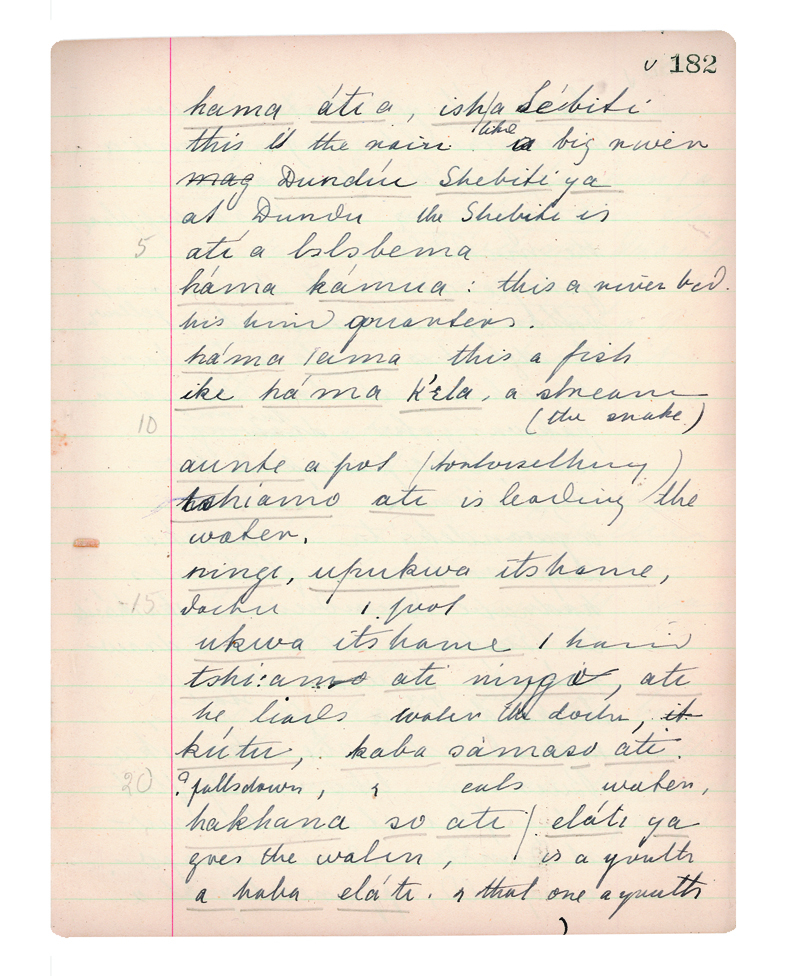 v 182
hama átia, isha Sébiti
this is the rain like a big river
mag Dundúu Shebiti ya
at Dundu the Shebiti is
5 ati a lslsbema
háma kámua : this a river bed.
his hind quarters.
háma /ama this a fish
ike háma K'ɛla, a stream
10 (the snake)
aunte a pot (tortoiseshell)
tshiamo ati is leading the
water.
ningi, upukwa itshame,
15 1 pot
ukwa itshame 1 hand
tshi:amo ati ningi, ati
he leads water the it
kútu, kaba samaso áti.
20 ? falls down, & eats water,
hakhana so ati / eláti ya
goes the water, is a youth
a haba eláti. & that one a youth